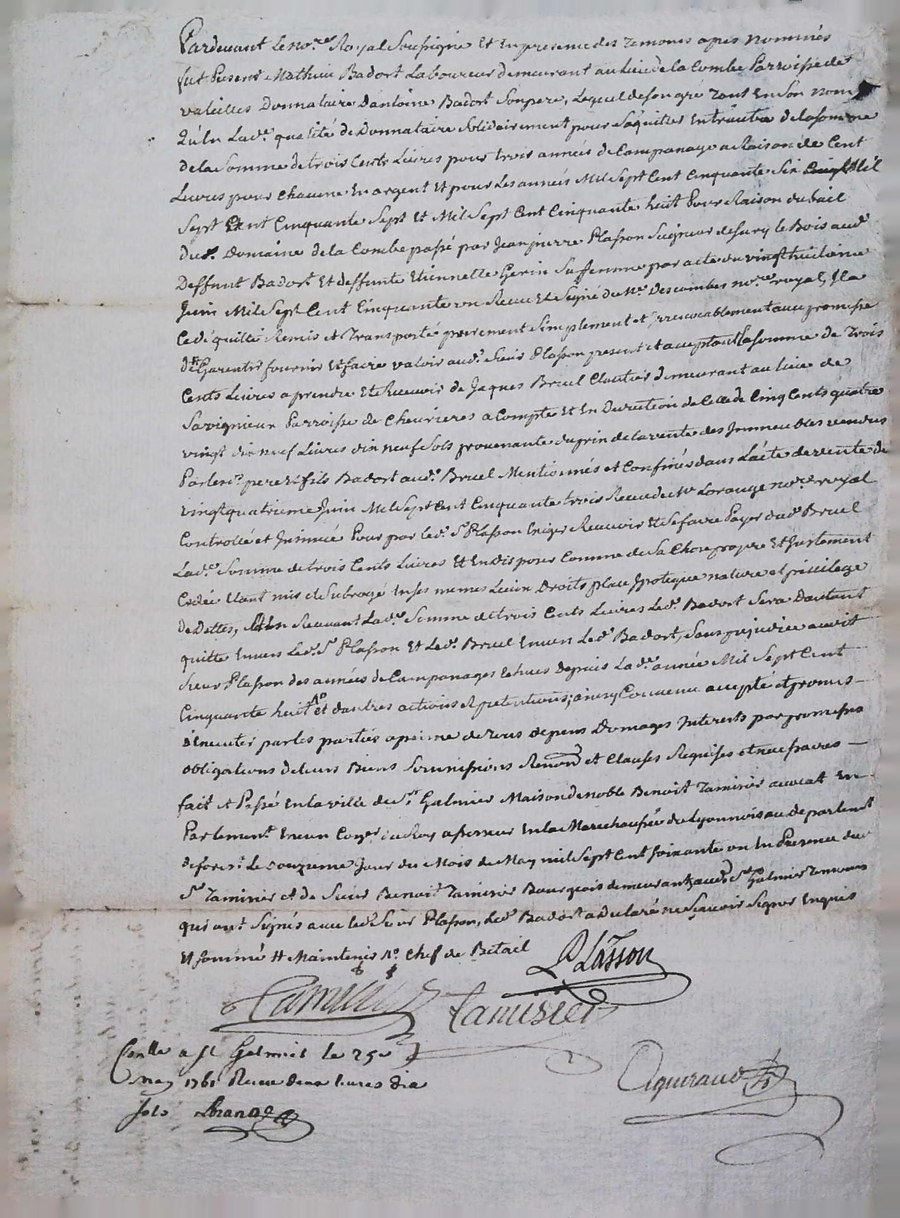 Pardevant le no.re Royal Soussigné Et en presence des Temoins apres Nommés
fut Present Mathieu Badort Laboureur demeurant au lieu de la Combe Parroisse de
valeilles Donnataire Dantoine Badort Son pere, Lequel de son gre Tant En Son nom
Qu'En Lad.e qualité de Donnataire Solidairement pour S'aquitter de la somme
de la Somme de trois Cents Livres pour trois années de Campanage a Raison de Cent
Livres pour Chacune En argent Et pour Les années Mil Sept Cent Cinquante Six Mil
Sept Cent Cinquante Sept Et Mil Sept Cent Cinquante huit Pour Raison du bail
Dud. Domaine de la Combe passé par Jean pierre Plasson Seigneur de Sury le Bois aud.
Deffunt Badort Et deffunte Etiennette Gerin Sa femme par acte du vingt huitieme
Juin Mil Sept Cent Cinquante un Recu Et Signé du M.e Descombes no.re royal, Il a
Cedé quitté Remis et Transporté purement Simplement et irrevocablement avec promesse
de Garentir fournir Et faire valoir aud. Sieur Plasson present et acceptant la somme de Trois
Cents Livres a prendre Et Recevoir de Jaques Bruel Cloutier demeurant au lieu de
Savignieux Parroisse de Chevrieres a Compte Et En Deduction de Celle de Cinq Cents quatre
vingt dix neuf Livres dix neuf Sols provenante du prix de la vente des Immeubles vendus
Par les d. pere et fils Badort aud. Bruel Mentionnés et Confinés dans L'acte de vente du
vingt quatrieme Juin Mil Sept Cent Cinquante trois Recu de M.e Lorange no.re royal
Controllé et Insinué Pour par led. S. Plasson Exiger Recevoir Et Se faire Payer dud. Bruel
Lad.e Somme de trois Cents Livres Et En disposer Comme de Sa Chose propre Et Justement
Cedée L'ayant mis et Subrogé En Ses memes Lieux Droits place Ipoteque nature et privilege
de Dettes, En Recevant Lad.e Somme de trois Cents Livres Led. Badort Sera D'autant
quitte Envers Led. S. Plasson Et Led. Bruel Envers Led. Badort, Sans prejudice audit
Sieur Plasson des années de Campanages Echues Depuis Lad.e année Mil Sept Cent
Cinquante huit et d'autres actions Et pretentions; ainsy Convenu accepté et promis
D'Executer par les parties a peine de tous depens Domages Interets par promesses
obligations de leurs Biens Soumissions Renon.on et Clauses Requises et necessaires
fait et Passé En la ville de S.t Galmier Maison de Noble Benoit Tamisier avocat En
Parlement Con.er du Roy assesseur En la Marechaussée du Lyonnois au departem.t
de forest Le onzieme Jour du Mois de May mil Sept Cent Soixante un En Presence dud.
S.r Tamisier et de Sieur Benoit Tamisier Bourgeois demeurant aud. S.t Galmier Temoins
qui ont Signés avec led. Sieur Plasson, Led. Badort a Declaré ne Sçavoir Signer Enquis
Et Sommé Maintenir Chef de Betail
Plasson
Tamisier Tamisier
Con.lle a St Galmier le 25e
May 1761 Recu deux livres dix
sols Lorange
Aguiraud